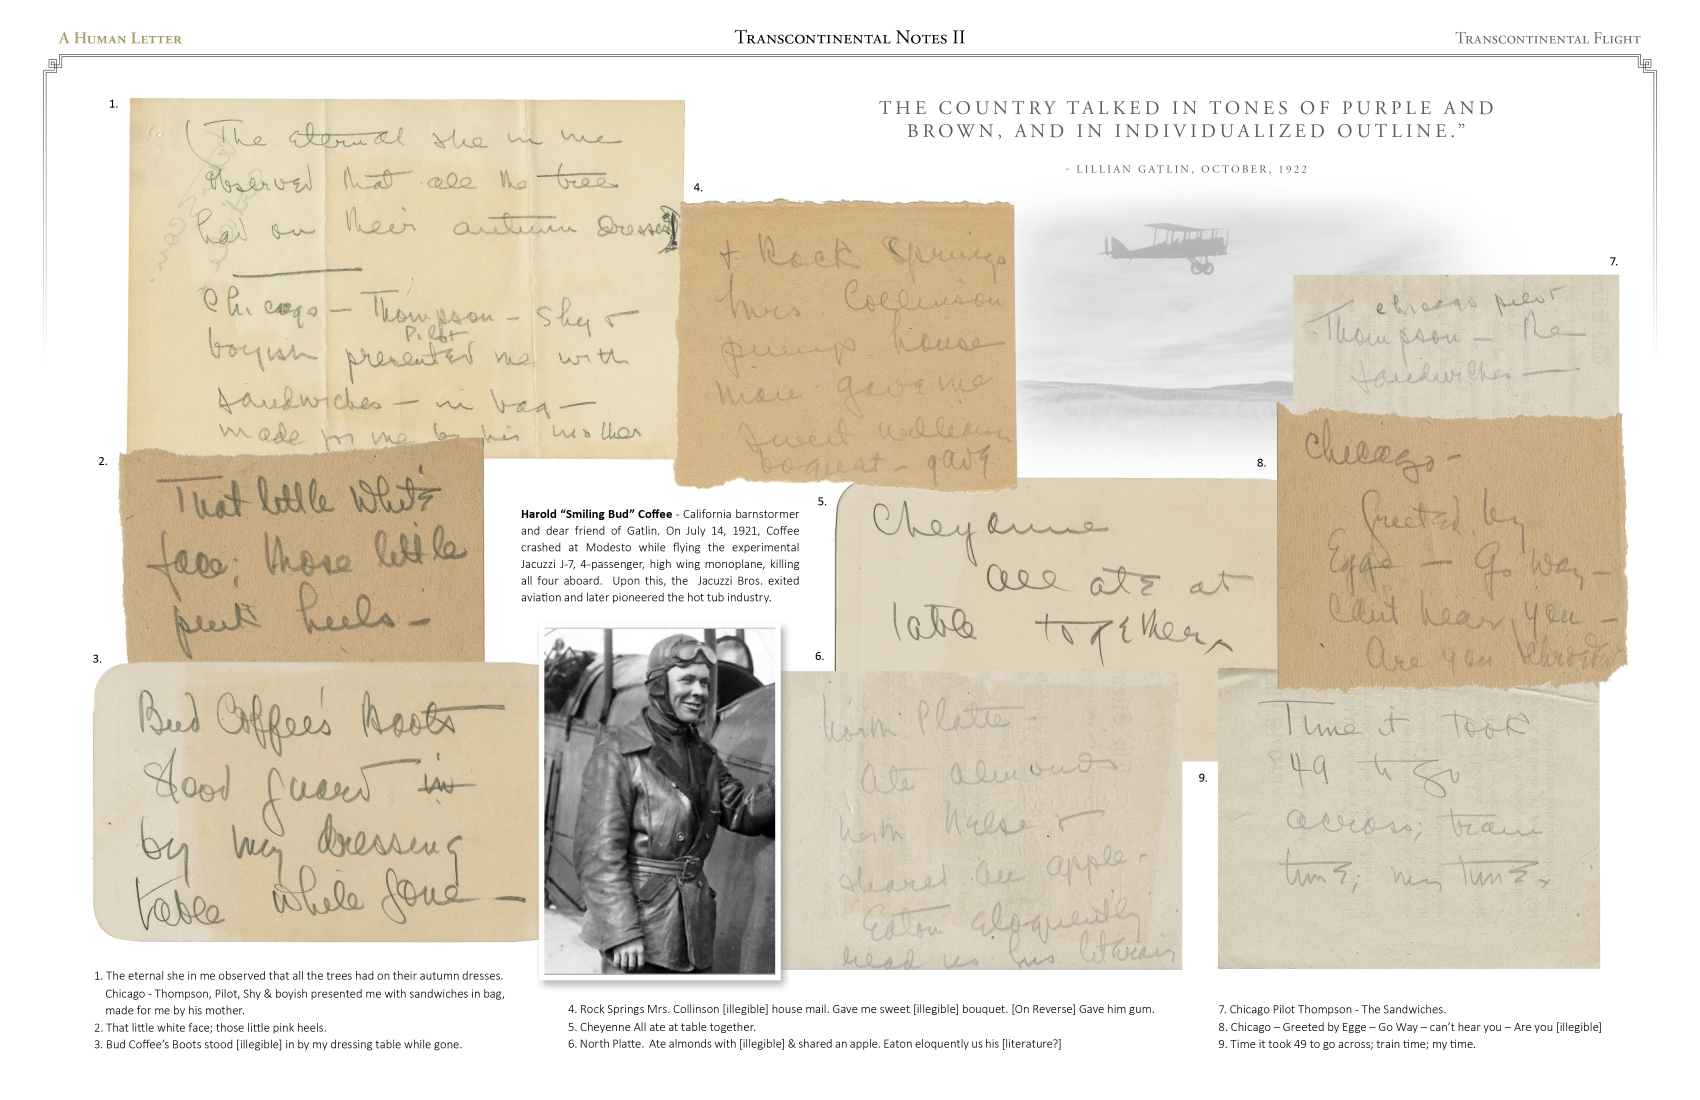 A Human Letter
Transcontinental Notes II
Transcontinental Flight
THE COUNTRY TALKED IN TONES OF PURPLE AND
BROWN, AND IN INDIVIDUALIZED OUTLINE.”
- LILLIAN GATLIN, OCTOBER, 1922
1.
(The eternal she in me
observed that all the trees
had on their autumn dresses)
Chicago — Thompson — Shy &
Pilot
boyish presented me with
sandwiches — in bag —
made for me by his mother
2.
That little white
face; those little
pink heels —
3.
Bud Coffee's Boots
stood guard in
by my dressing
table while gone —
4.
+ Rock Springs
Mrs. Collinson
house
gave me
sweet william
boqueat — gave
5.
Cheyanne
all ate at
table together
6.
North Platte —
Ate almonds
with &
shared an apple.
Eaton eloquently
read us his
7.
chicago pilot
Thompson — The
sandwiches —
8.
Chicago —
Greeted by
Egge — Go Way —
can't hear you —
Are you
9.
Time it took
49 to go
across; train
time; my time
Harold “Smiling Bud” Coffee - California barnstormer
and dear friend of Gatlin. On July 14, 1921, Coffee
crashed at Modesto while flying the experimental
Jacuzzi J-7, 4-passenger, high wing monoplane, killing
all four aboard. Upon this, the Jacuzzi Bros. exited
aviation and later pioneered the hot tub industry.
1. The eternal she in me observed that all the trees had on their autumn dresses.
Chicago - Thompson, Pilot, Shy & boyish presented me with sandwiches in bag,
made for me by his mother.
2. That little white face; those little pink heels.
3. Bud Coffee’s Boots stood [illegible] in by my dressing table while gone.
4. Rock Springs Mrs. Collinson [illegible] house mail. Gave me sweet [illegible] bouquet. [On Reverse] Gave him gum.
5. Cheyenne All ate at table together.
6. North Platte. Ate almonds with [illegible] & shared an apple. Eaton eloquently us his [literature?]
7. Chicago Pilot Thompson - The Sandwiches.
8. Chicago – Greeted by Egge – Go Way – can’t hear you – Are you [illegible]
9. Time it took 49 to go across; train time; my time.